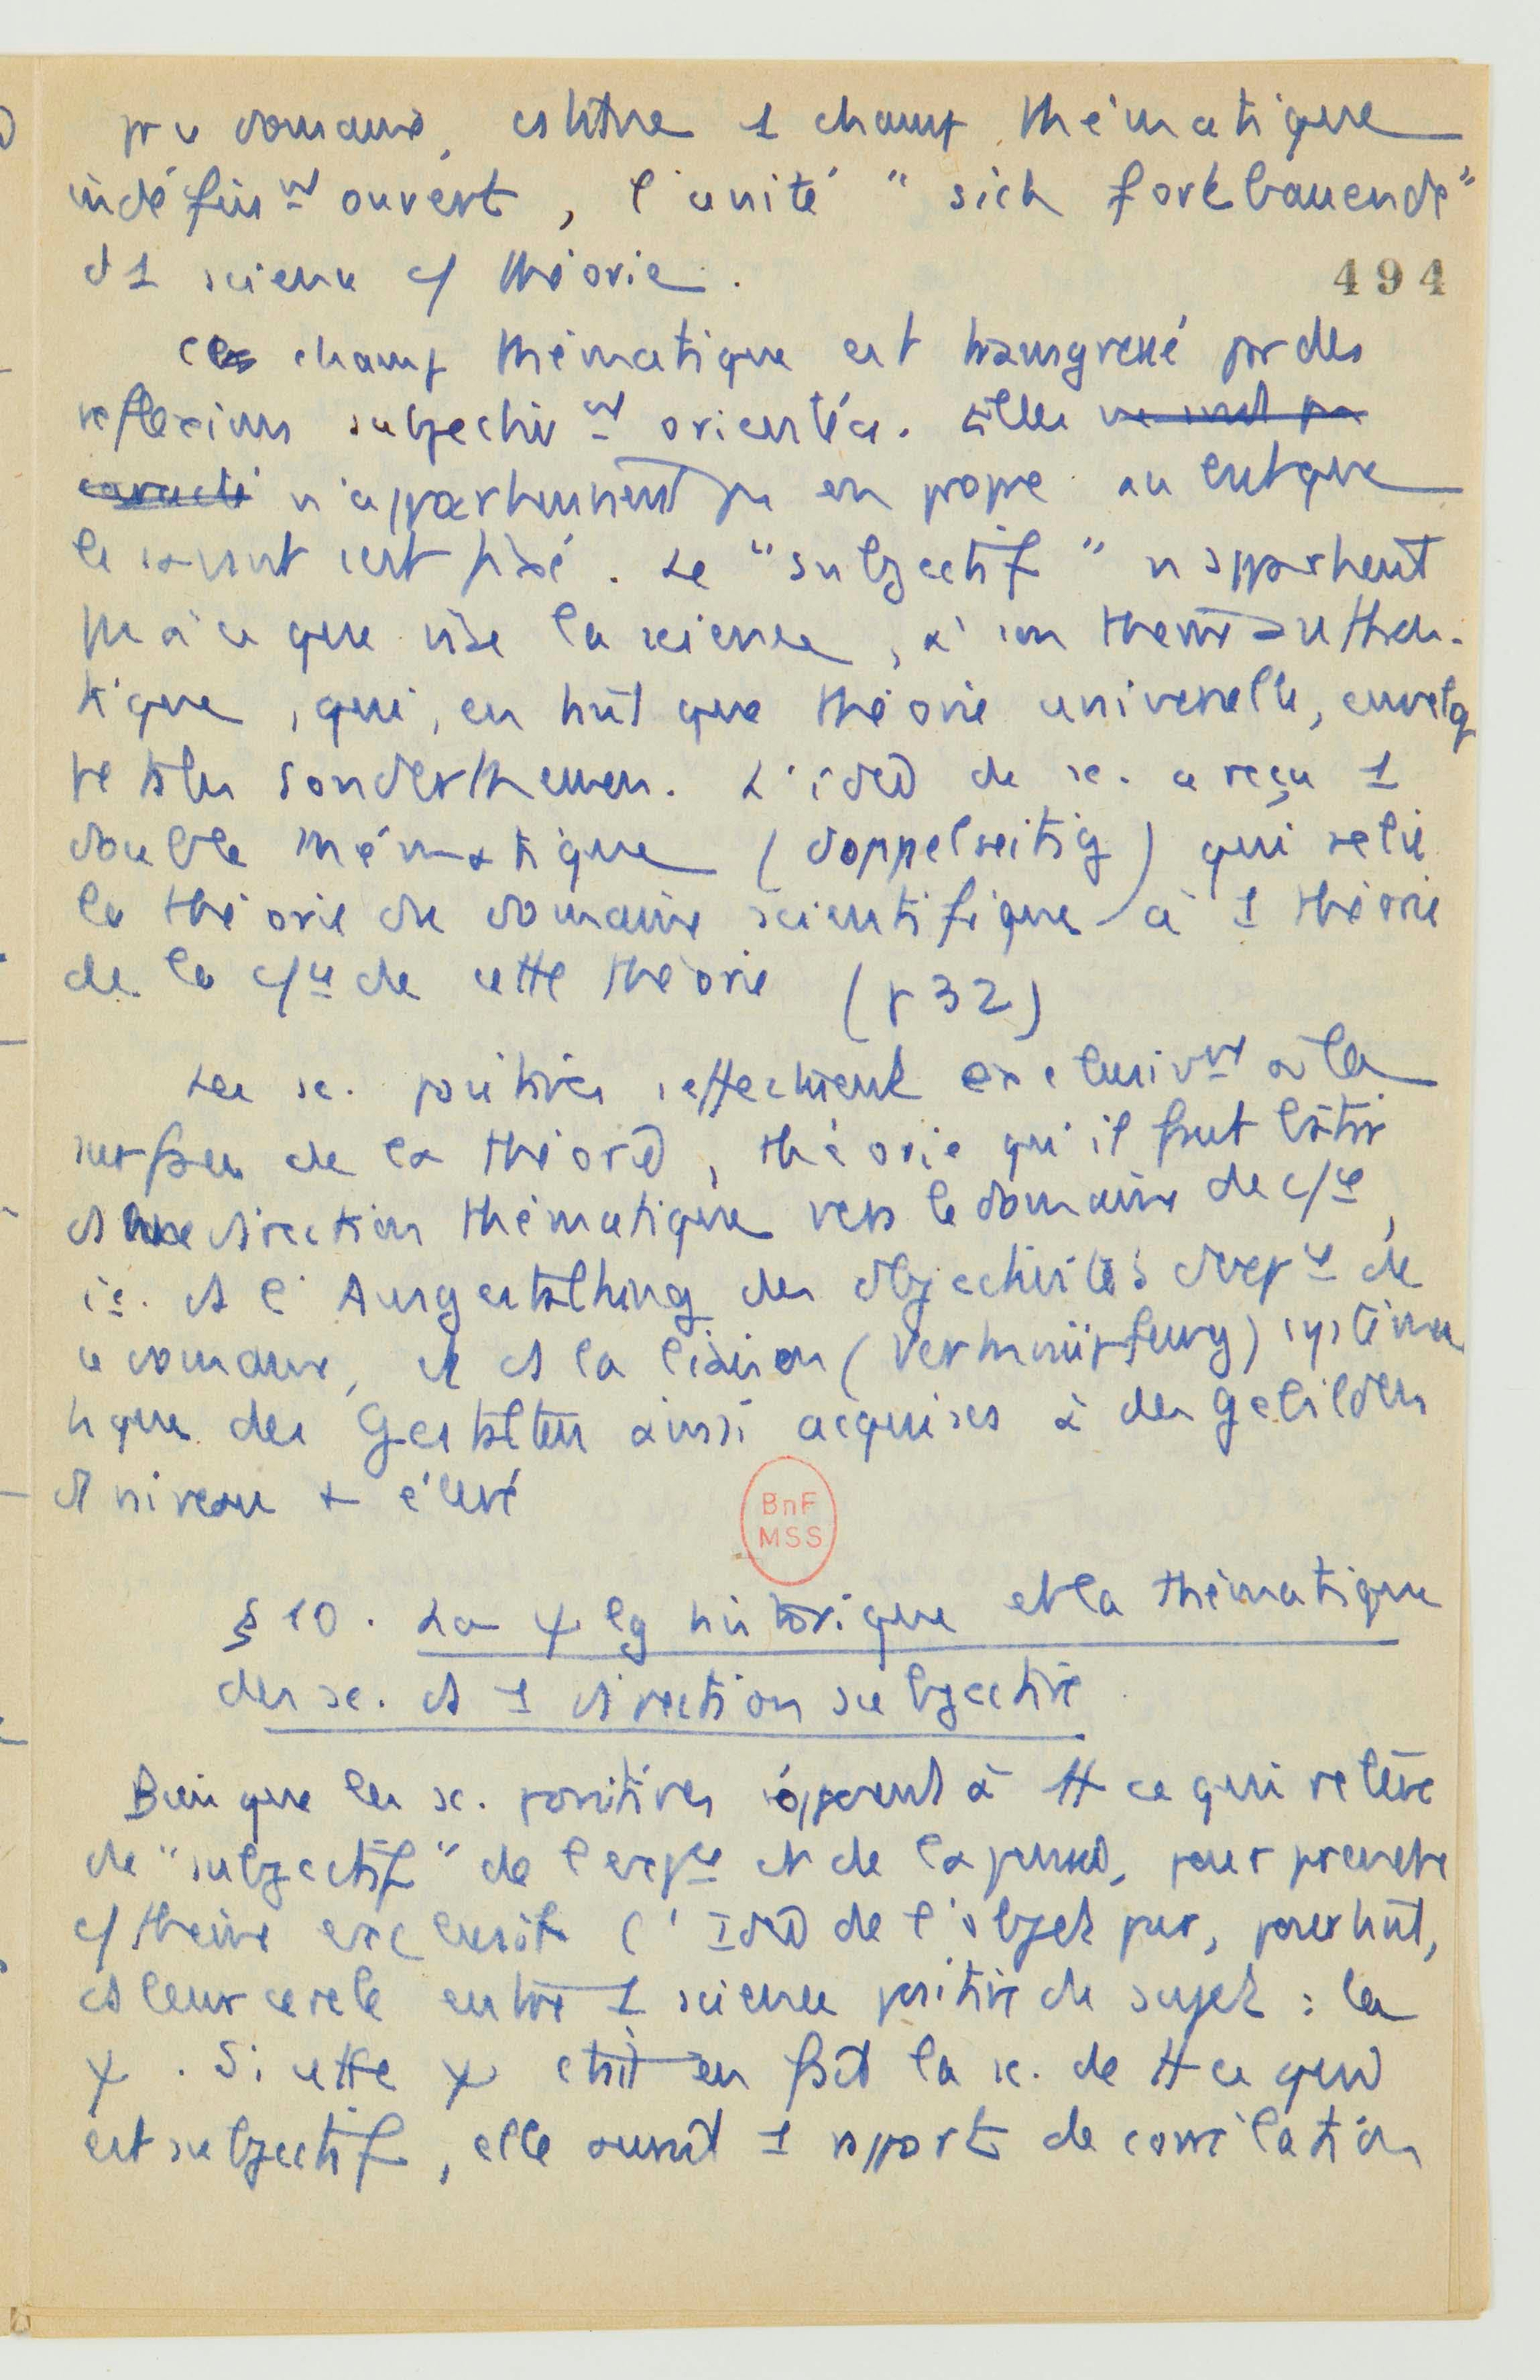 domaine, constitue 1 champ thématique
indéfinimt ouvert, l'unité "sich fortbauende"
d 1 science c/ théorie.
494
ce champ thématique est transgressé par des
reflexions subjectivmt orientées. Elles ne sont pas
caracté n'appartiennent pas en propre au but que
le savant s'est fixé. Le "subjectif" n'appartient
pas à ce que vise la science, à son thème authen-
tique, qui, en tant que théorie universelle, envelop
pe ts les Sonderthemen. L'idée de sc. a reçu 1
double thématique (doppelseitig) qui relie
la théorie du domaine scientifique à 1 théorie
de la c/ce de cette théorie (p 32)
Les sc. positives s'effectuent exclusivmt à la
surface de la théorie, théorie qu'il faut bâtir
ds une direction thématique vers le domaine de c/ce,
i.e. ds l'Ausgestaltung des objectivités d'expce de
ce domaine, et ds la liaison (Verknüpfung) systéma
tique des Gestalten ainsi acquises à des Gebilden
d niveau + élevé
BnF
MSS
§ 10. La ψ lg historique et la thématique
des sc. ds 1 direction subjective
Bien que les sc. positives s'opposent à tt ce qui relève
de "subjectif" de l'expce et de la pensée, pour prendre
c/ thème exclusif l'Idée de l'objet pur, pourtant,
ds leur cercle entre 1 science positive du sujet : la
ψ. Si cette ψ était en fait la sc. de tt ce qui
est subjectif, elle aurait 1 rapport de corrélation